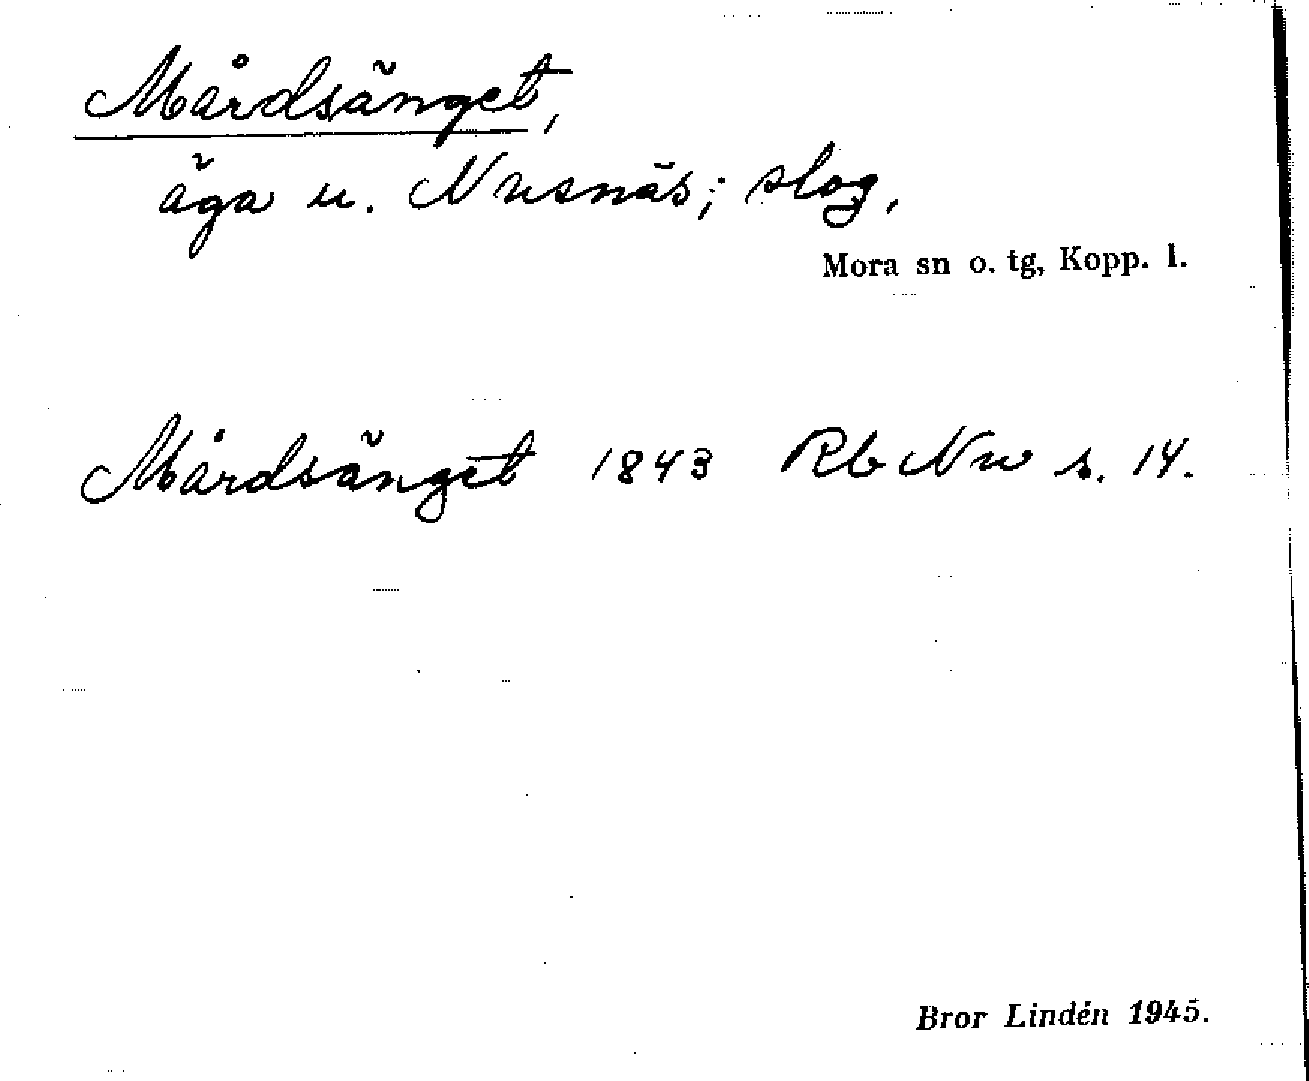 Mårdsänget,
äga u. Nusnäs; slog,
Mora sn o. tg, Kopp. l.
Mårdsänget 1843 Rb Nu s. 14.
Bror Lindén 1945.